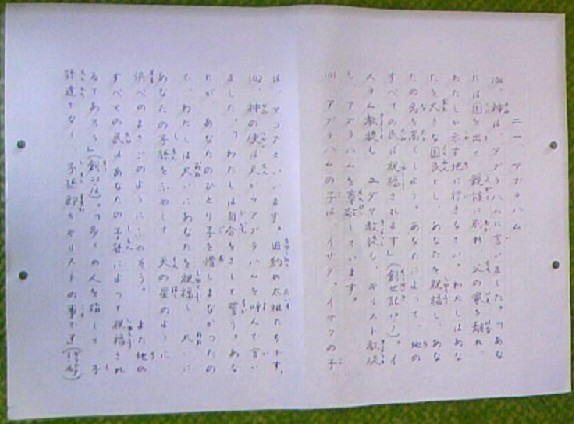 二一、アブラハム
神は、アブラハムに言いました。「あな
たは国を出て、親族に別れ、父の家を離れ、
わたしが示す地に行きなさい。わたしはあな
たを大いなる国民とし、あなたを祝福し、あな
たの名を高くしよう。あなたによって、地の
すべての民は祝福されます」(創世記 イ
スラム教徒も、ユダヤ教徒も、キリスト教徒
も、アブラハムを尊敬しています。
アブラハムの子は、イサク、イサクの子
は、ヤコブといいます。旧約の太祖たちです。
神の使は天からアブラハムを呼んで言い
ました。「わたしは自分をさして誓う。あな
たが、あなたのひとり子を惜しまなかったの
で、わたしは大いにあなたを祝福し、大いに
あなたの子孫をふやして、天の星のように
浜べのまさごのようにするだろう。また地の
すべての民はあなたの子孫によって祝福され
るであろう」(創 多くの人を指して 子
孫達でなく 子孫 キリストの事です